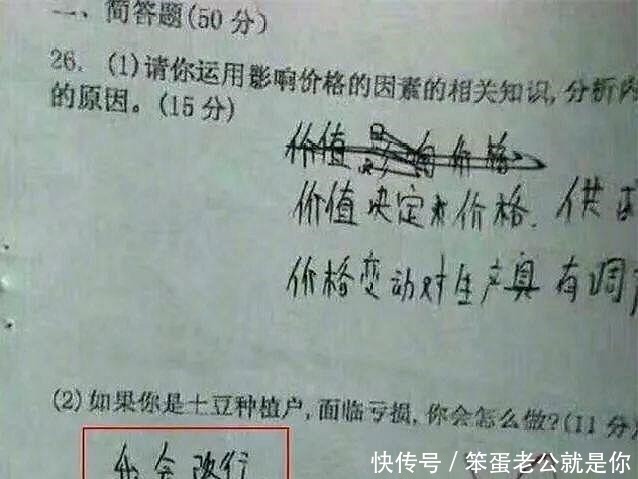 一、简答题(50分)
26. (1)请你运用影响价格的因素的相关知识,分析内
的原因。(15分)
价值决定价格. 供求
价格变动对生产具有调
(2)如果你是土豆种植户,面临亏损,你会怎么做?(11分)
我会改行
快传号/笨蛋老公就是你